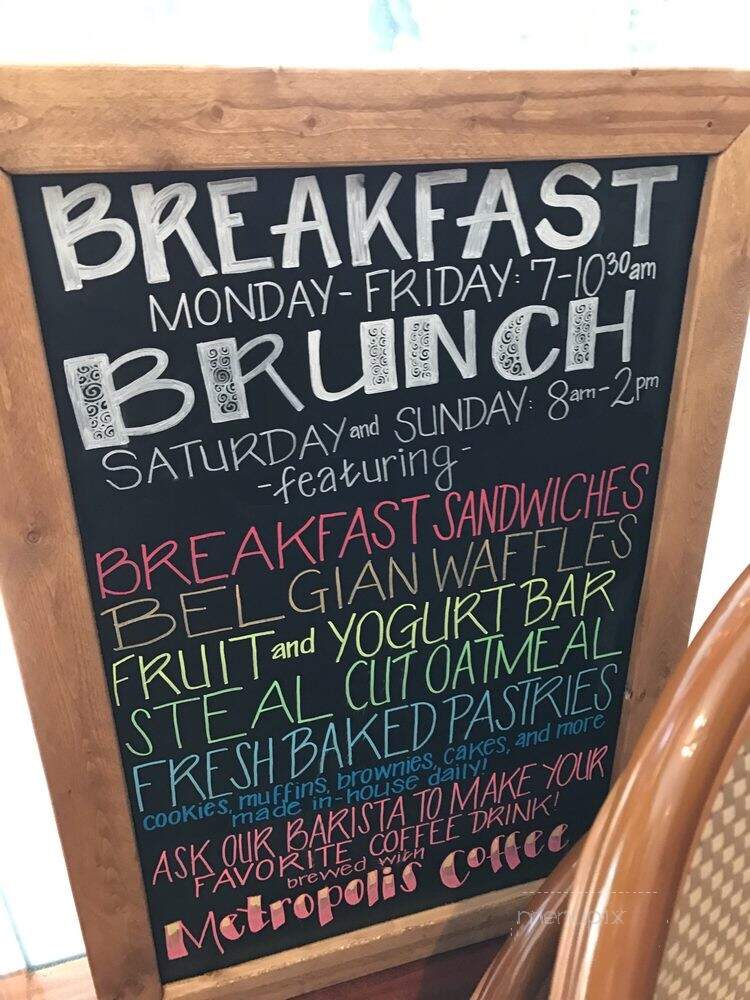 BREAKFAST
MONDAY - FRIDAY: 7-10³⁰am
BRUNCH
SATURDAY and SUNDAY: 8am-2pm
-featuring-
BREAKFAST SANDWICHES
BELGIAN WAFFLES
FRUIT and YOGURT BAR
STEAL CUT OATMEAL
FRESH BAKED PASTRIES
cookies, muffins, brownies, cakes, and more
made in-house daily!
ASK OUR BARISTA TO MAKE YOUR
FAVORITE COFFEE DRINK!
brewed with
Metropolis Coffee
menupix